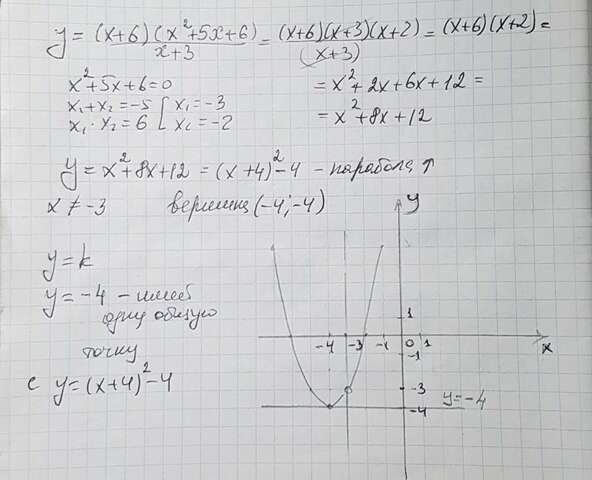 y = (x+6)(x²+5x+6) / x+3 = (x+6)(x+3)(x+2) / (x+3) = (x+6)(x+2) =
x²+5x+6=0
= x²+2x+6x+12 =
x₁+x₂=-5 [ x₁=-3
x₁·x₂=6 [ x₂=-2
= x²+8x+12
y = x²+8x+12 = (x+4)²-4 - парабола ↑
x ≠ -3 вершина (-4; -4)
y
y=k
y=-4 - имеет
одну общую
точку
с y=(x+4)²-4
1
-4 -3 -1 0 1
x
-1
-3
-4
y=-4